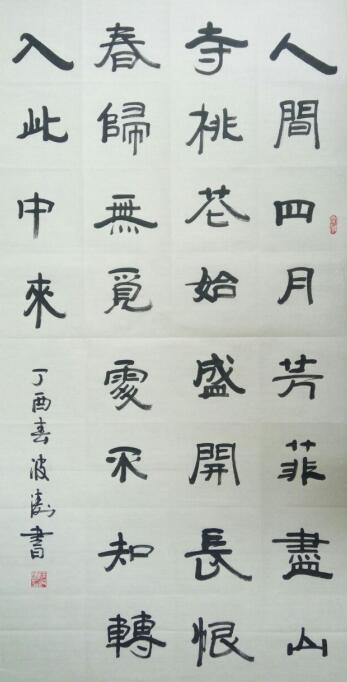 人間四月芳菲盡山
寺桃花始盛開長恨
春歸無覓處不知轉
入此中來
丁酉春波濤書